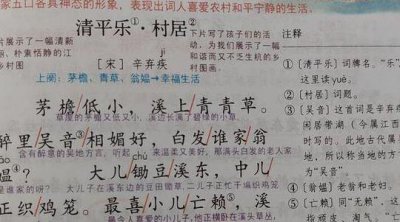 家五口各具神态的形象，表现出词人喜爱农村和平宁静的生活。
清平乐①·村居②
片展示了一幅清新
、朴素恬静的江
村图画。
下片写了孩子们的活
动，为我们展示了一幅
和谐而又不乏生机的乡
村图景。
［宋］辛弃疾
上阕：茅檐、青草、翁媪→幸福生活
茅檐/低小，溪上/青青草。
草屋的茅檐又低又小，溪边长满了碧绿的小草。
醉里吴音③相媚好，白发/谁家/翁
含有醉意的吴地方言，听起来温柔又美好，那满头白发的老人家
媪④？ 大儿/锄豆/溪东，中儿/
chú
是谁家的呀？大儿子在溪东边的豆田锄草，二儿子正忙于编织鸡笼
正织/鸡笼。最喜/小儿/亡赖⑤，溪
注释
①［清平乐］词牌名。“乐”
这里读yuè。
②［村居］词题。
③［吴音］这首词是辛弃疾
闲居带湖（今属江西
时写的。此地古代属吴
地，所以称当地的方言
为“吴
④［翁媪］老翁和老妇。
⑤［亡赖］同“无赖”，这